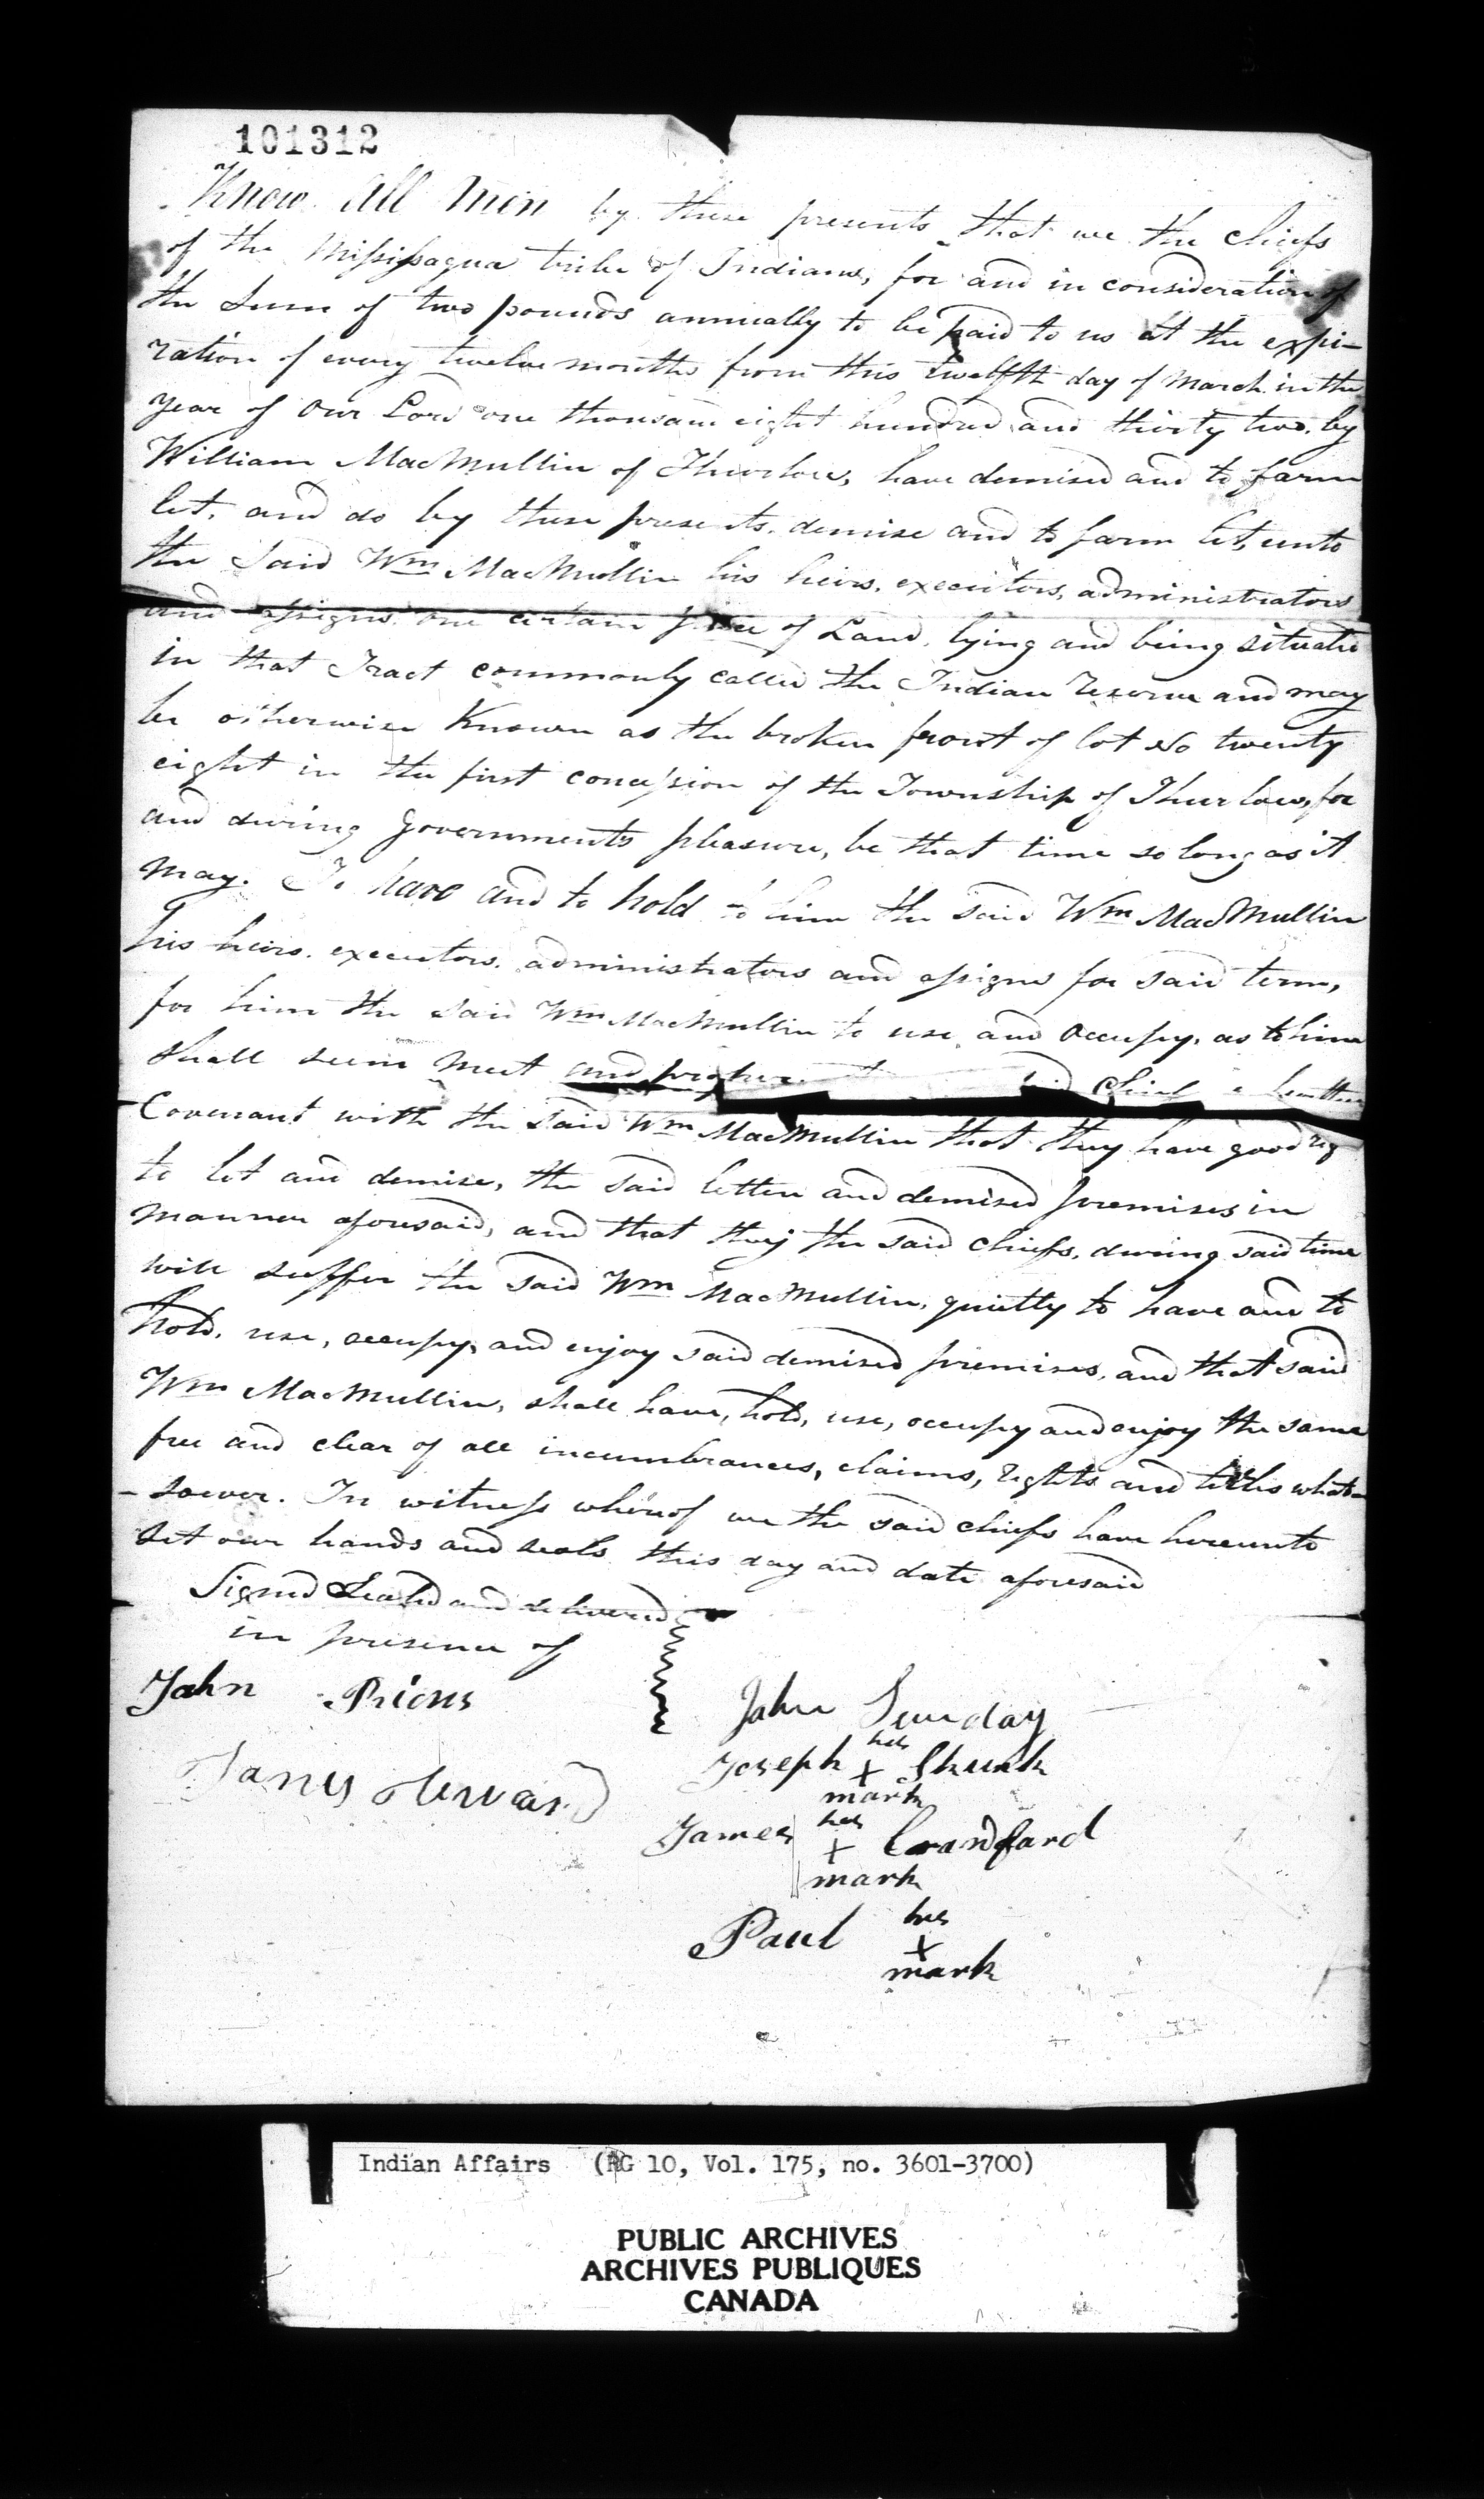 101312
Know All Men by these presents that we the chiefs
of the Missisagua tribe of Indians, for and in consideration of
the Sum of two pounds annually to be paid to us at the expi-
ration of every twelve months from this twelfth day of March in the
year of Our Lord one thousand eight hundred and thirty two by
William MacMullin of Thurlow, have demised and to farm
let, and do by these presents, demise and to farm let, unto
the Said Wm MacMullin his heirs, executors, administrators
and assigns one certain piece of Land, lying and being situate
in that Tract commonly called the Indian reserve and may
be otherwise Known as the broken front of lot No twenty
eight in the first concession of the Township of Thurlow, for
and during Governments pleasure, be that time so long as it
may. To have and to hold to him the said Wm MacMullin
his heirs, executors, administrators and assigns for said term,
for him the said Wm MacMullin to use and occupy, as to him
shall seem meet and proper chiefs
Covenant with the said Wm MacMullin that they have good
to let and demise, the said letten and demised premises in
manner aforesaid, and that they the said chiefs, during said time
will suffer the said Wm MacMullin, quietly to have and to
hold, use, occupy, and enjoy said demised premises, and that said
Wm MacMullin, shall have, hold, use, occupy and enjoy the same
free and clear of all incumbrances, claims, rights and titles what-
-soever. In witness whereof we the said chiefs have hereunto
set our hands and seals this day and date aforesaid
Signed Sealed and delivered
in presence of
John
John Sunday
Joseph his X mark Skunk
James his X mark Crandfard
Paul his X mark
Indian Affairs (RG 10, Vol. 175, no. 3601-3700)
PUBLIC ARCHIVES
ARCHIVES PUBLIQUES
CANADA